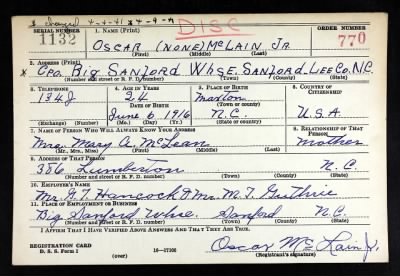 x changed 4-4-41
DISC
SERIAL NUMBER 1. NAME (Print) ORDER NUMBER
1132 OSCAR (NONE) McLAIN JR 770
(First) (Middle) (Last)
2. ADDRESS (Print)
x C/o. BIG SANFORD WHSE. SANFORD LEE CO. N.C.
(Number and street or R. F. D. number) (Town) (County) (State)
3. TELEPHONE 4. AGE IN YEARS 5. PLACE OF BIRTH 6. COUNTRY OF CITIZENSHIP
134J 24 Maxton
DATE OF BIRTH (Town or county)
June 6, 1916 N.C. U.S.A.
(Exchange) (Number) (Mo.) (Day) (Yr.) (State or country)
7. NAME OF PERSON WHO WILL ALWAYS KNOW YOUR ADDRESS 8. RELATIONSHIP OF THAT PERSON
Mrs. Mary A. McLean Mother
(Mr., Mrs., Miss) (First) (Middle) (Last)
9. ADDRESS OF THAT PERSON
386 Lumberton N.C.
(Number and street or R. F. D. number) (Town) (County) (State)
10. EMPLOYER'S NAME
Hancock & Mr. M. T. Guthrie
11. PLACE OF EMPLOYMENT OR BUSINESS
Big Sanford Whse. Sanford N.C.
(Number and street or R. F. D. number) (Town) (County) (State)
I AFFIRM THAT I HAVE VERIFIED ABOVE ANSWERS AND THAT THEY ARE TRUE.
REGISTRATION CARD
D. S. S. Form 1 16-17105 Oscar McLain Jr.
(Registrant's signature)